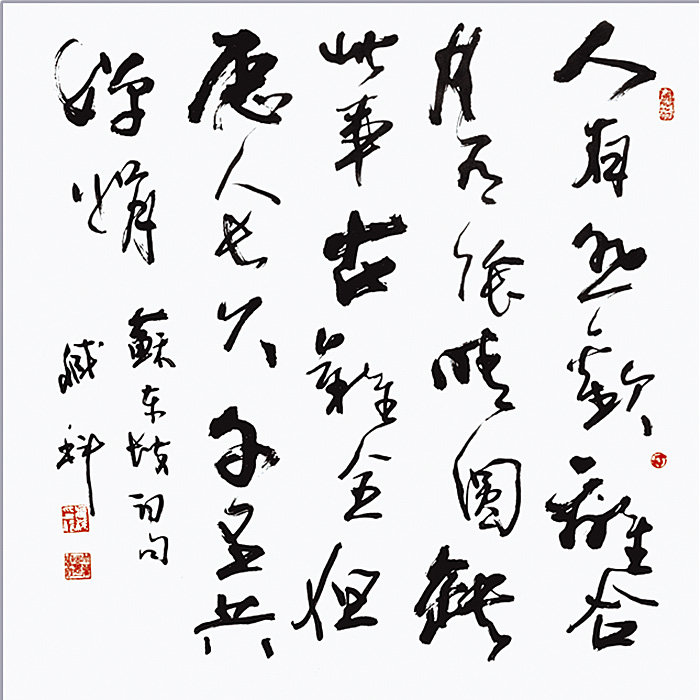 人有悲歡離合
月有陰晴圓缺
此事古難全但
愿人長久千里共
嬋娟
蘇東坡詞句
臧科